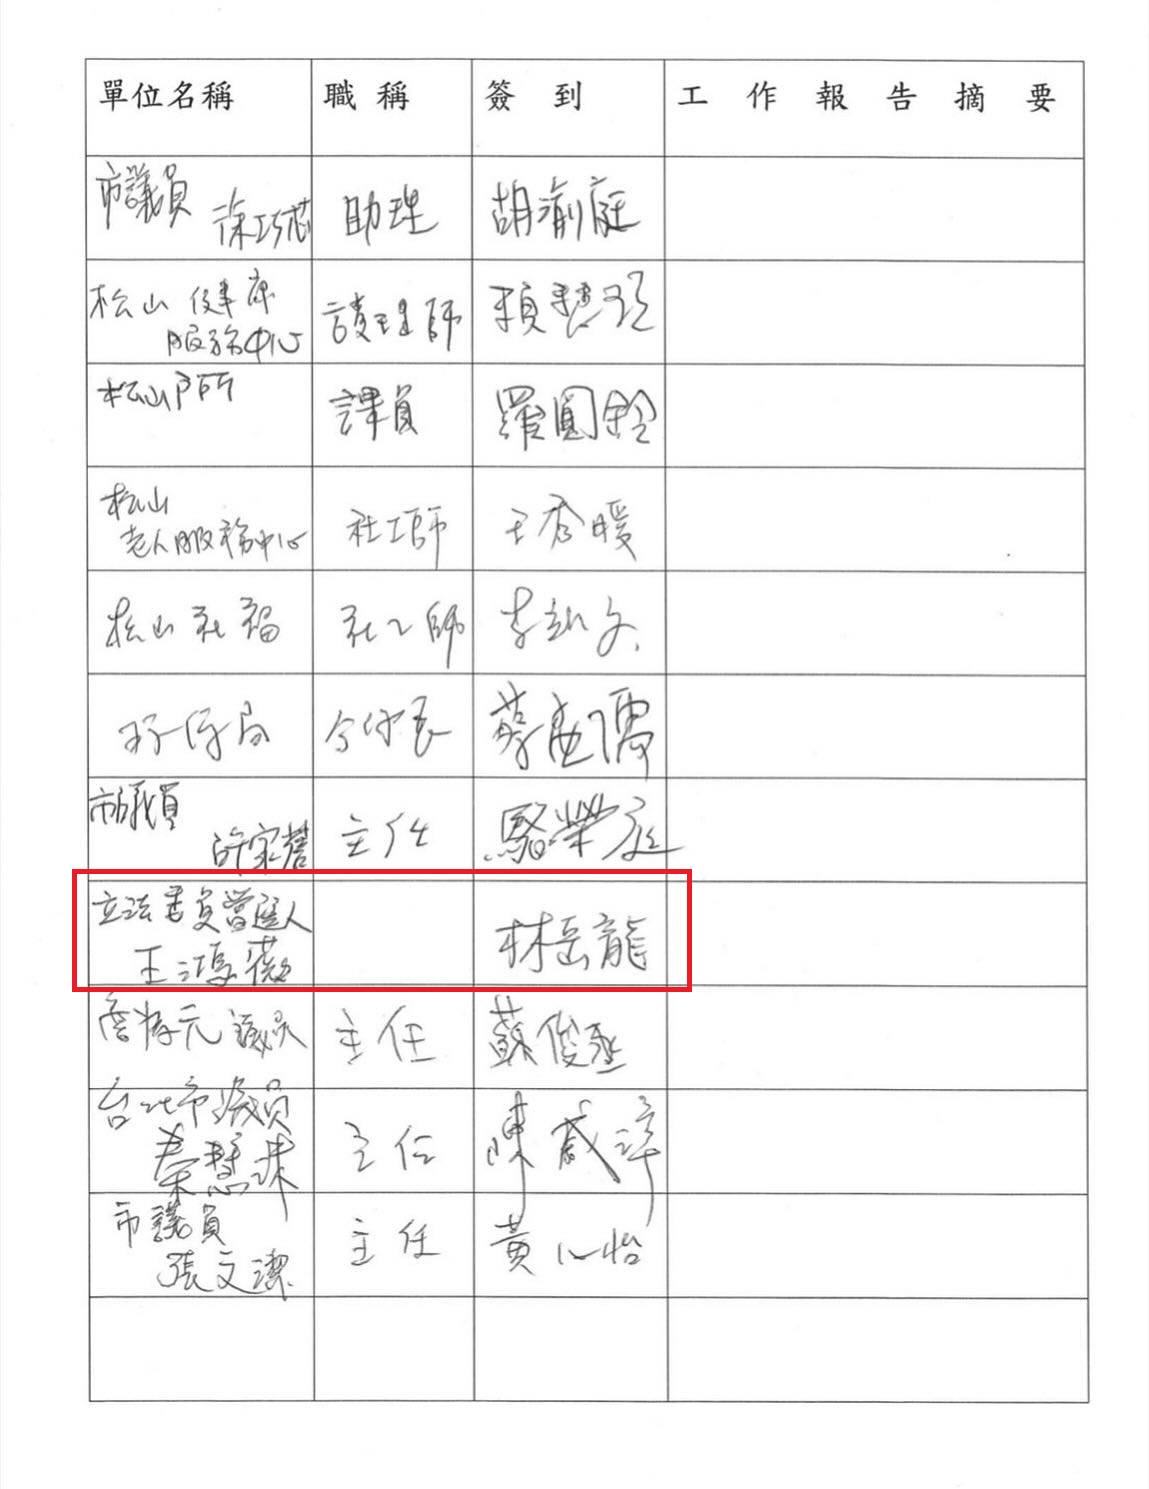 單位名稱 職稱 簽到 工作報告摘要
市議員
徐巧芯 助理 胡渝庭
松山健康
服務中心 護理師 賴慧
松山戶所 課員 羅圓鈴
松山
老人服務中心 社工師 王秀暖
松山社福 社工師 李 文
環保局 分隊長 蔡 儒
市議員
許家蓓 主任 駱榮庭
立法委員當選人
王鴻薇 林岳龍
詹為元議員 主任 蘇俊丞
台北市議員
秦慧珠 主任 陳威
市議員
張文潔 主任 黃心怡